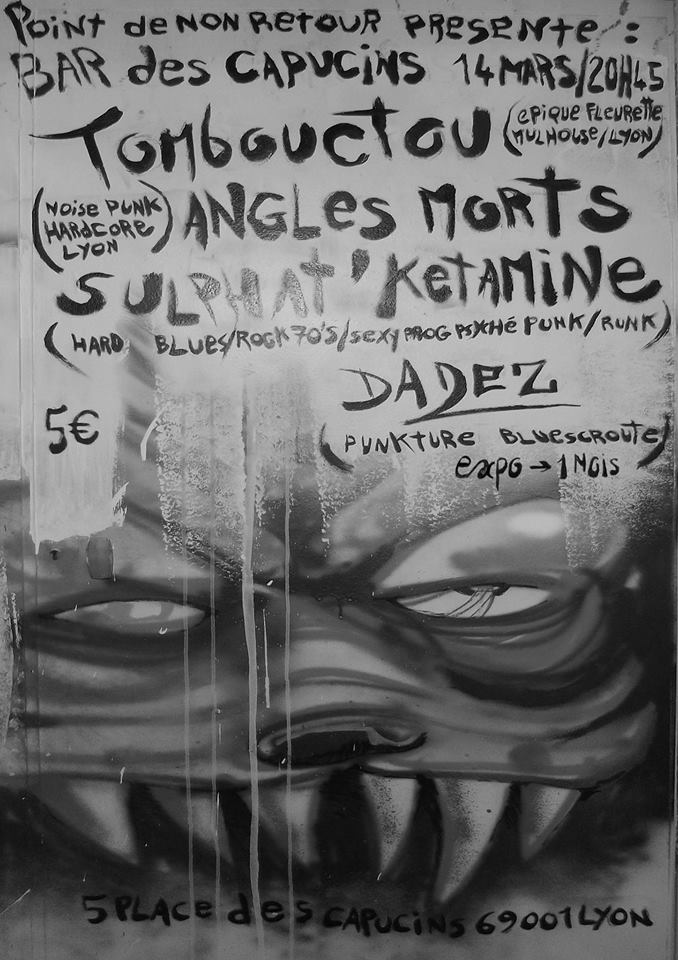 POINT de NON RETOUR PRESENTE :
BAR des CAPUCINS 14 MARS/20H45
TOMBOUCTOU (EPIQUE FLEURETTE
MULHOUSE/LYON)
(NOISE PUNK
HARDCORE
LYON) ANGLES MORTS
SULPHAT'KETAMINE
(HARD BLUES/ROCK 70'S/SEXY PROG PSYCHÉ PUNK/RUNK)
DADEZ
5€
(PUNKTURE BLUESCROUTE)
EXPO → 1 MOIS
5 PLACE des CAPUCINS 69001 LYON